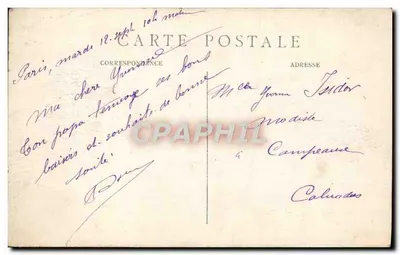 CARTE POSTALE
CORRESPONDANCE
ADRESSE
Paris, mardi 12 sept 10h matin
Ma chere Yvonne
Ton papa t'envoye ses bons
baisers et souhaits de bonne
santé.
Melle Yvonne Isidor
modiste
à Campeaux
Calvados
CPAPHIL